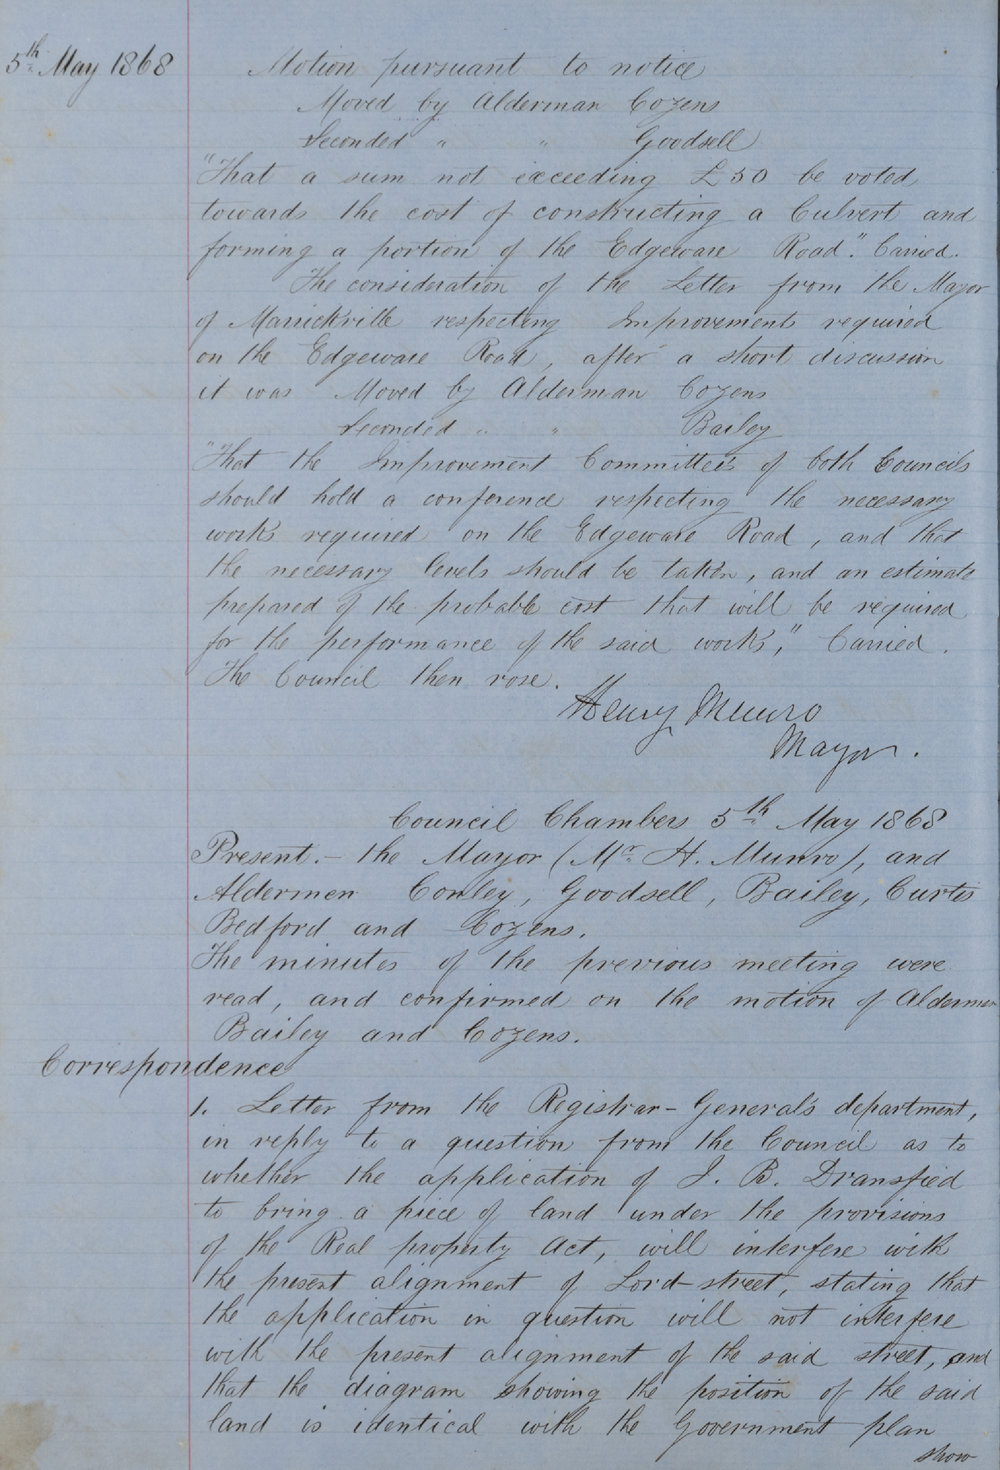 5th May 1868
Motion pursuant to notice
Moved by Alderman Cozens
Seconded " " Goodsell
"That a sum not exceeding £50 be voted
towards the cost of constructing a Culvert and
forming a portion of the Edgeware Road." Carried.
The consideration of the Letter from the Mayor
of Marrickville respecting Improvements required
on the Edgeware Road, after a short discussion
it was Moved by Alderman Cozens
Seconded " " Bailey
"That the Improvement Committees of both Councils
should hold a conference respecting the necessary
works required on the Edgeware Road, and that
the necessary levels should be taken, and an estimate
prepared of the probable cost that will be required
for the performance of the said works," Carried.
The Council then rose.
Henry Munro
Mayor.
Council Chambers 5th May 1868
Present.- the Mayor (Mr. H. Munro), and
Aldermen Conley, Goodsell, Bailey, Curtis
Bedford and Cozens.
The minutes of the previous meeting were
read, and confirmed on the motion of Aldermen
Bailey and Cozens.
Correspondence
1. Letter from the Registrar-General's department,
in reply to a question from the Council as to
whether the application of J. B. Dransfied
to bring a piece of land under the provisions
of the Real property Act, will interfere with
the present alignment of Lord-street, stating that
the application in question will not interfere
with the present alignment of the said street, and
that the diagram showing the position of the said
land is identical with the Government plan
show